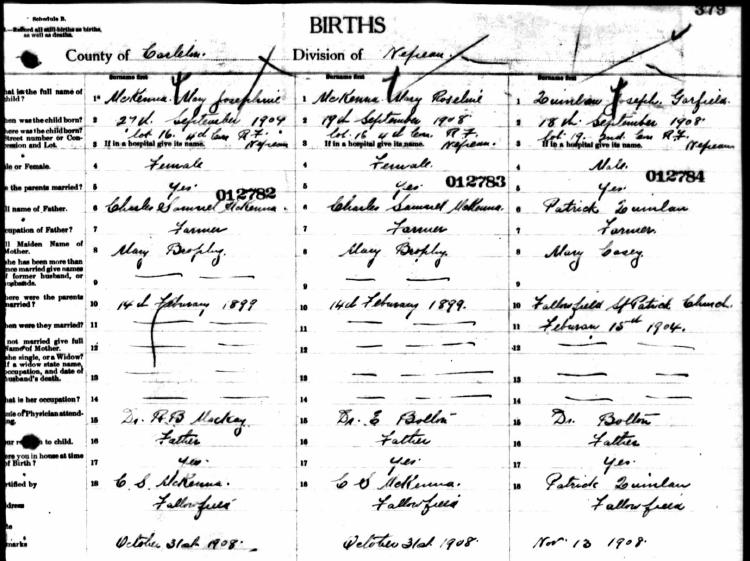 Schedule B.
379
BIRTHS
as well as deaths.
County of Carleton. Division of Nepean.
Surname first Surname first Surname first
child? 1 McKenna Mary Josephine 1 McKenna Mary Roseline 1 Quinlan Joseph Garfield
hen was the child born? 2 27th September 1904 2 19th September 1908 2 18th September 1908
here was the child born? lot 16. 4th Con R.F. lot 16 4th Con. R.F. lot 19. 2nd Con R.F.
3 If in a hospital give its name. Nepean 3 If in a hospital give its name. Nepean. 3 If in a hospital give its name. Nepean
le or Female. 4 Female 4 Female. 4 Male.
the parents married? 5 Yes. 5 Yes. 5 Yes
012782 012783 012784
ll name of Father. 6 Charles Samuel McKenna 6 Charles Samuel McKenna. 6 Patrick Quinlan
cupation of Father? 7 Farmer 7 Farmer 7 Farmer.
ll Maiden Name of
Mother. 8 Mary Brophy. 8 Mary Brophy. 8 Mary Casey.
she has been more than
nce married give names
f former husband, or
usbands. 9 9 9
here were the parents
married? 10 14th February 1899 10 14th February 1899. 10 Fallowfield St Patrick Church.
hen were they married? 11 11 11 Februan 15th 1904.
not married give full
Name of Mother. 12 12 12
she single, or a Widow?
f a widow state name,
occupation, and date of
husband's death. 13 13 13
hat is her occupation? 14 14 14
me of Physician attend-
ing. 15 Dr. R B Mackay 15 Dr. E Bolton 15 Dr. Bolton
to child. 16 Father 16 Father 16 Father
ere you in house at time
of Birth? 17 yes. 17 yes. 17 Yes.
rtified by 18 C. S. McKenna. 18 C S McKenna. 18 Patrick Quinlan
ddress Fallowfield Fallowfield Fallowfield
te
marks October 31st 1908. October 31st 1908. Nov. 13 1908.